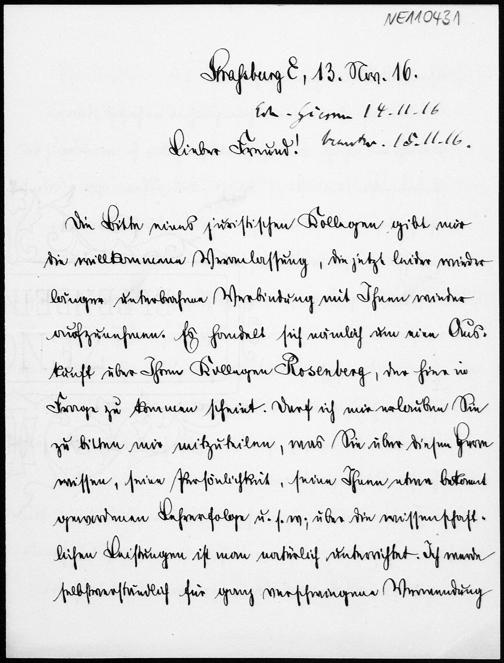 NE110431
Straßburg E, 13. Nov. 16.
14.11.16
Lieber Freund! beantw. 15.11.16.
Die Bitte eines juristischen Kollegen gibt mir
die willkommene Veranlassung, die jetzt leider wieder
länger unterbrochne Verbindung mit Ihnen wieder
aufzunehmen. Es handelt sich nämlich um eine Aus-
kunft über Ihren Kollegen Rosenberg, der hier in
Frage zu kommen scheint. Darf ich mir erlauben Sie
zu bitten mir mitzuteilen, was Sie über diesen Herrn
wissen, seine Persönlichkeit, seine Ihnen etwa bekannt
gewordenen Lehrerfolge u.s.w; über die wissenschaft-
lichen Leistungen ist man natürlich unterrichtet. Ich werde
selbstverständlich für ganz verschwiegene Verwendung